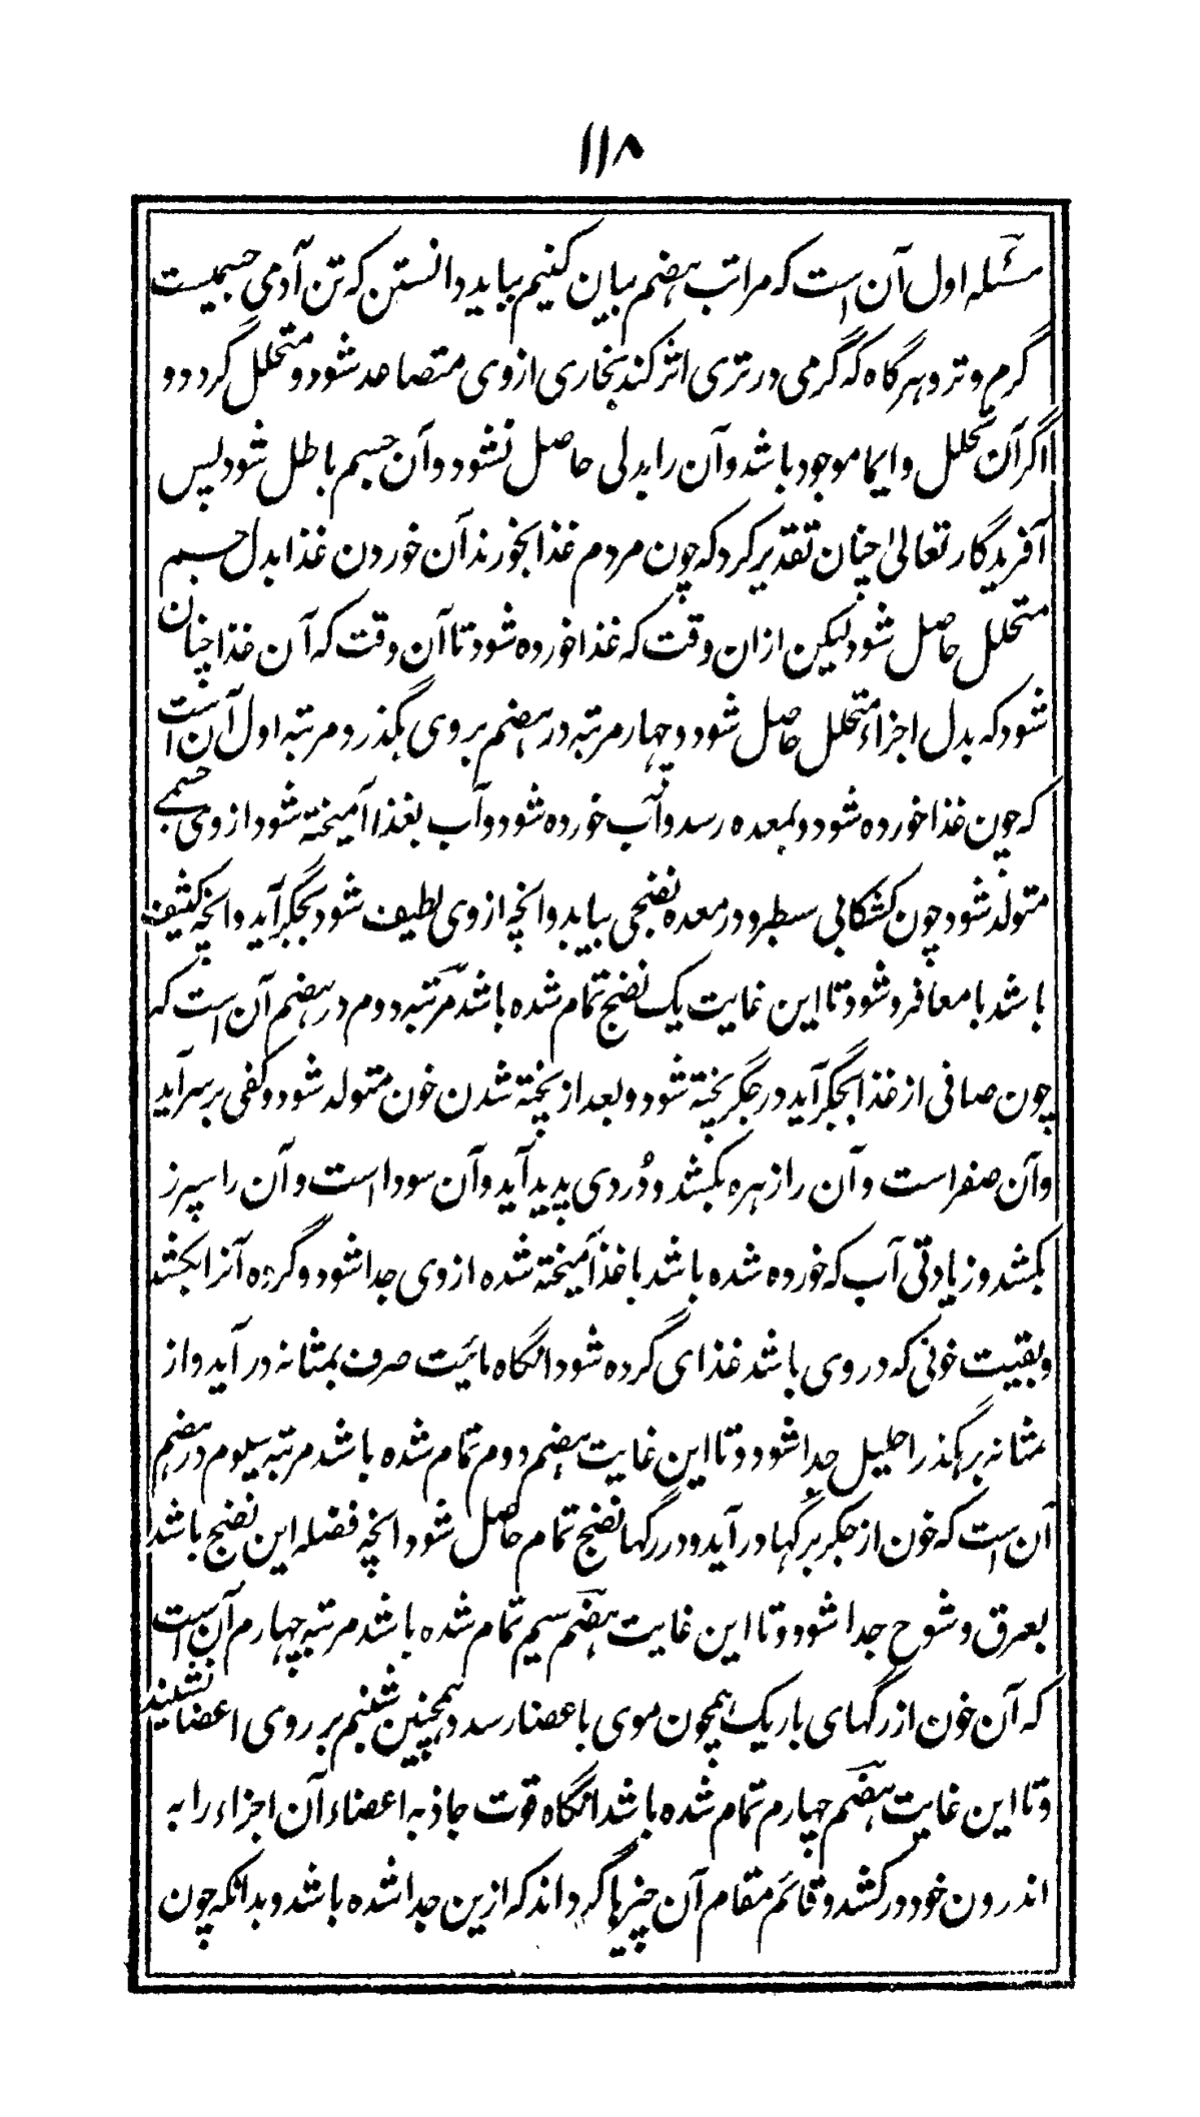 ۱۱۸
مسئله اول آن است که مراتب هضم بیان کنیم بباید دانستن که تن آدمی جسمیست
گرم و تر و هرگاه که گرمی در تری اثر کند بخاری از وی متصاعد شود و متحلل گردد و
اگر آن تحلل دایما موجود باشد و آن را بدلی حاصل نشود و آن جسم باطل شود پس
آفریدگار تعالیٰ چنان تقدیر کرد که چون مردم غذا بخورند آن خوردن غذا بدل جسم
متحلل حاصل شود لیکن ازان وقت که غذا خورده شود تا آن وقت که آن غذا چنان
شود که بدل اجزاء متحلل حاصل شود و چهار مرتبه در هضم بر وی بگذرد مرتبه اول آن است
که چون غذا خورده شود و بمعده رسد و آب خورده شود و آب بغذا آمیخته شود از وی جسمے
متولد شود چون کشکابی سطبر و در معده نضجی بیابد و انچه از وی لطیف شود بجگر آید و انچه کثیف
باشد بامعا فرو شود تا این غایت یک نضج تمام شده باشد مرتبه دوم در هضم آن است که
چون صافی از غذا بجگر آید در جگر پخته شود و بعد از پخته شدن خون متولد شود و کفی بر سر آید
و آن صفراست و آن را زهره بکشد و دُردی پدید آید و آن سودا است و آن را سپرز
بکشد و زیادتی آب که خورده شده باشد با غذا آمیخته شده از وی جدا شود و گرده آنرا بکشد
و بقیت خونی که در وی باشد غذای گرده شود انگاه مائیت صرف بمثانه در آید و از
مثانه برهگذر احلیل جدا شود و تا این غایت هضم دوم تمام شده باشد مرتبه سیوم در هضم
آن است که خون از جگر برگها در آید و در رگها نضج تمام حاصل شود انچه فضله این نضج باشد
بعرق و شوح جدا شود و تا این غایت هضم سیم تمام شده باشد مرتبه چهارم آن است
که آن خون از رگهای باریک همچون موی باعضا رسد و همچنین شبنم بر روی اعضا نشیند
و تا این غایت هضم چهارم تمام شده باشد انگاه قوت جاذبه اعضاء آن اجزاء را به
اندرون خود در کشد و قائم مقام آن چیزها گرداند که ازین جدا شده باشد و بدانکه چون